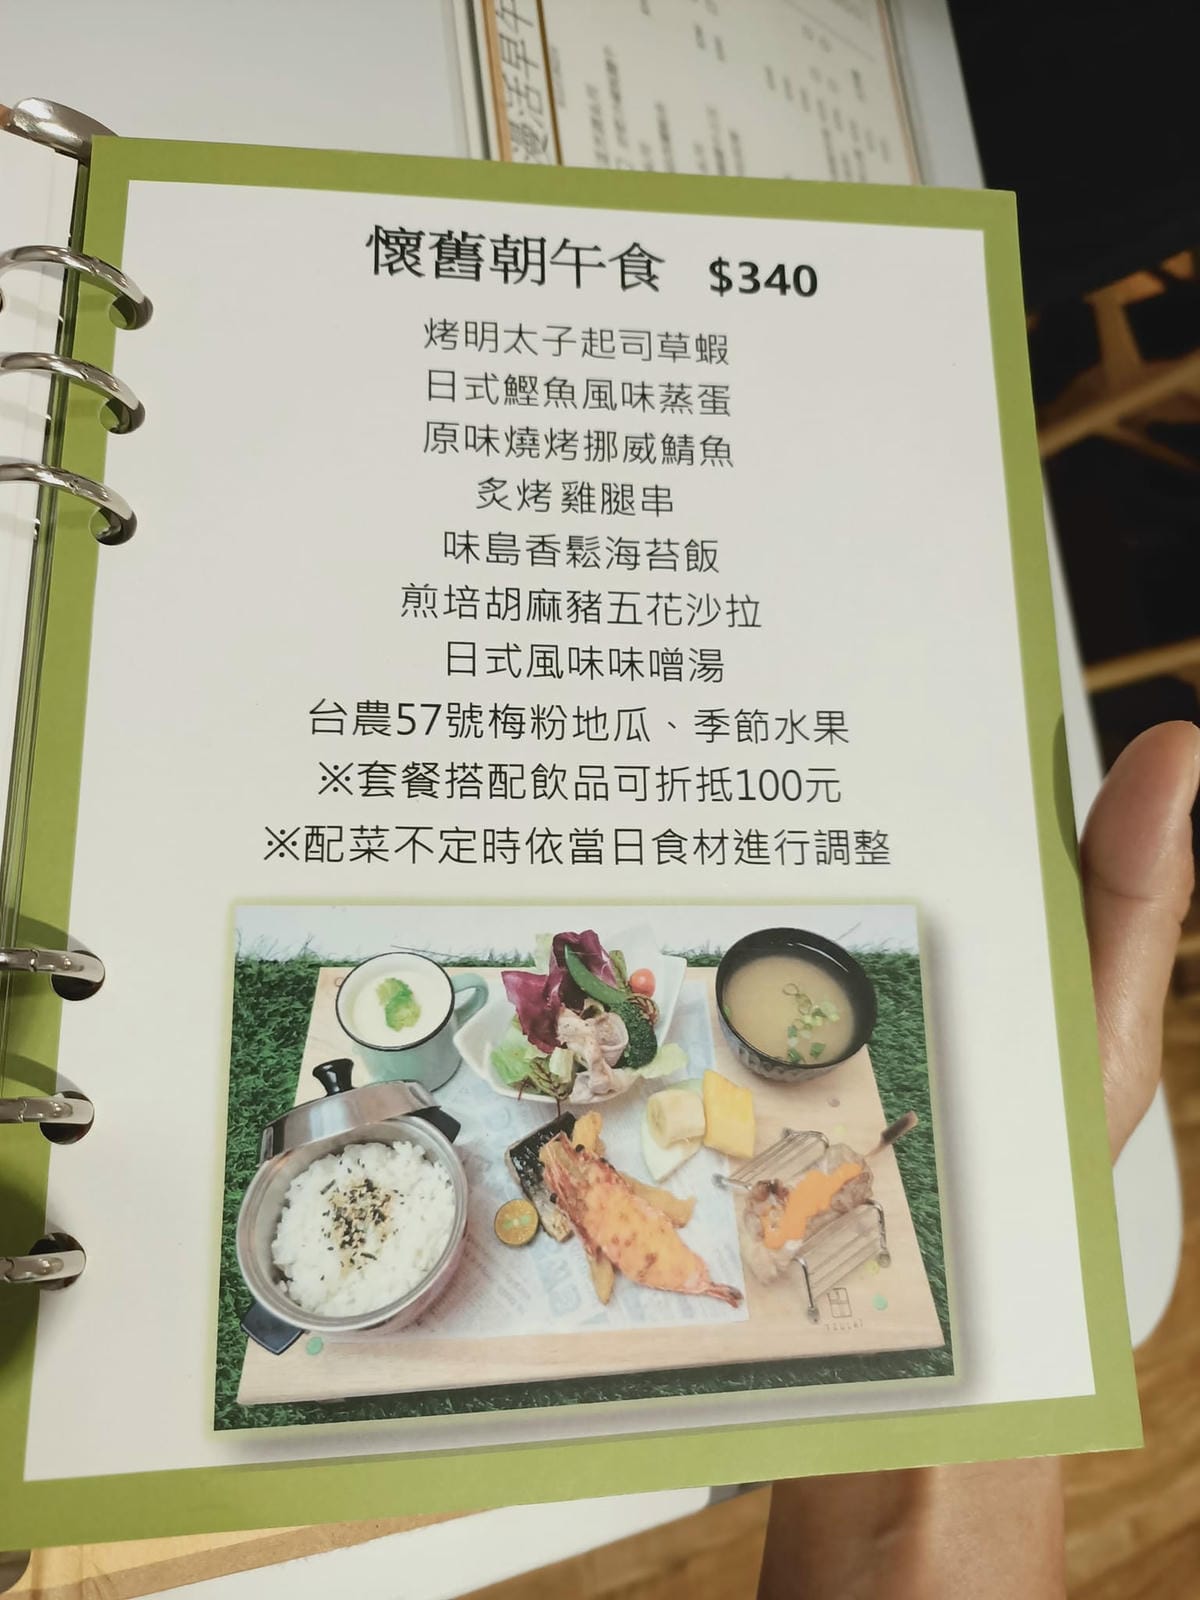 漫活早午
懷舊朝午食 $340
烤明太子起司草蝦
日式鰹魚風味蒸蛋
原味燒烤挪威鯖魚
炙烤雞腿串
味島香鬆海苔飯
煎培胡麻豬五花沙拉
日式風味味噌湯
台農57號梅粉地瓜、季節水果
※套餐搭配飲品可折抵100元
※配菜不定時依當日食材進行調整